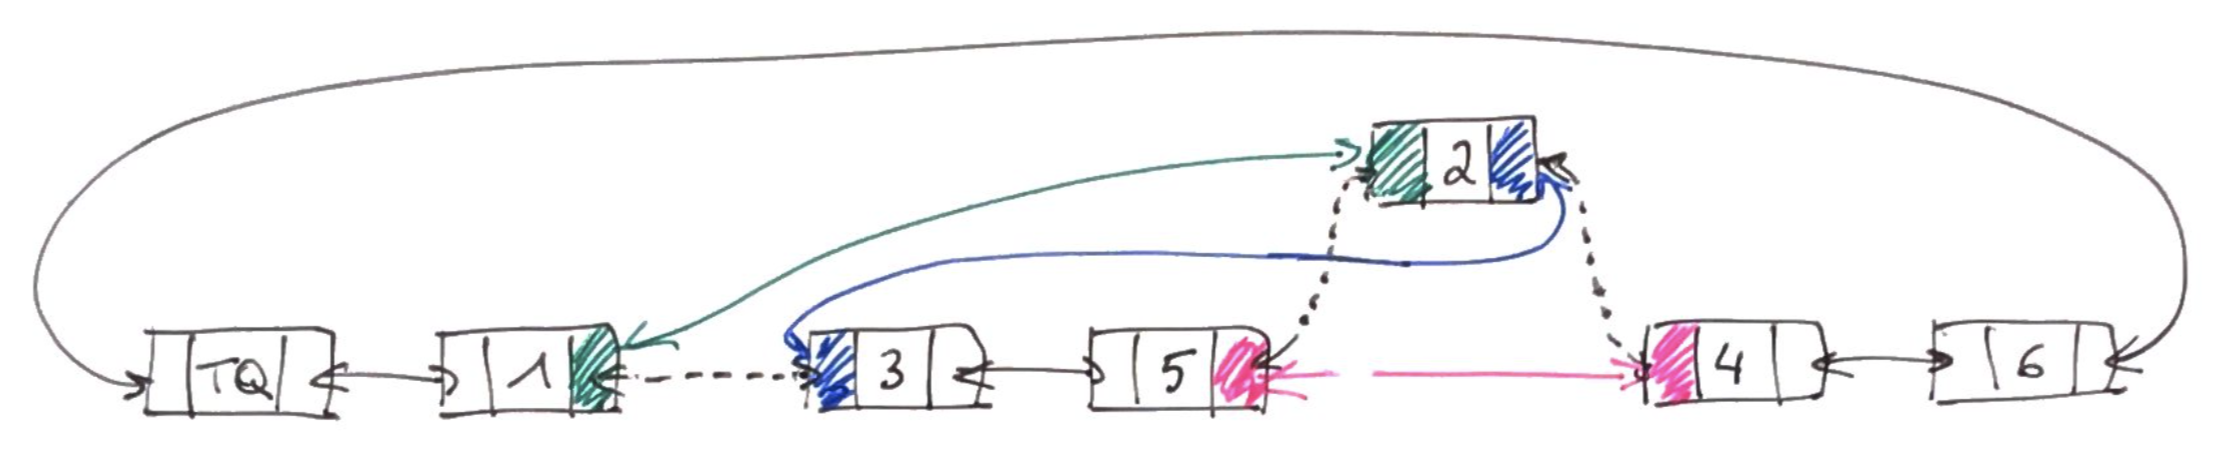 2
TQ 1 3 5 4 6